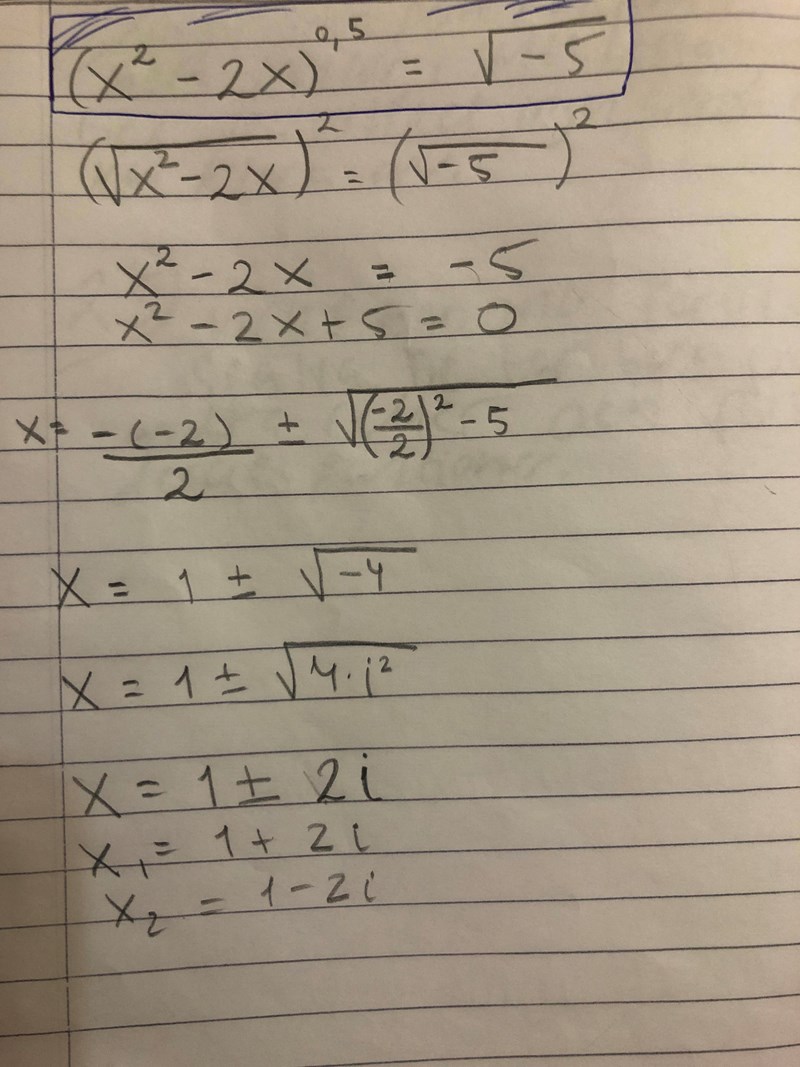 (x² - 2x)^0,5 = √-5
(√x² - 2x)² = (√-5)²
x² - 2x = -5
x² - 2x + 5 = 0
x = -(-2)/2 ± √(-2/2)² - 5
x = 1 ± √-4
x = 1 ± √4·i²
x = 1 ± 2i
x₁ = 1 + 2i
x₂ = 1 - 2i